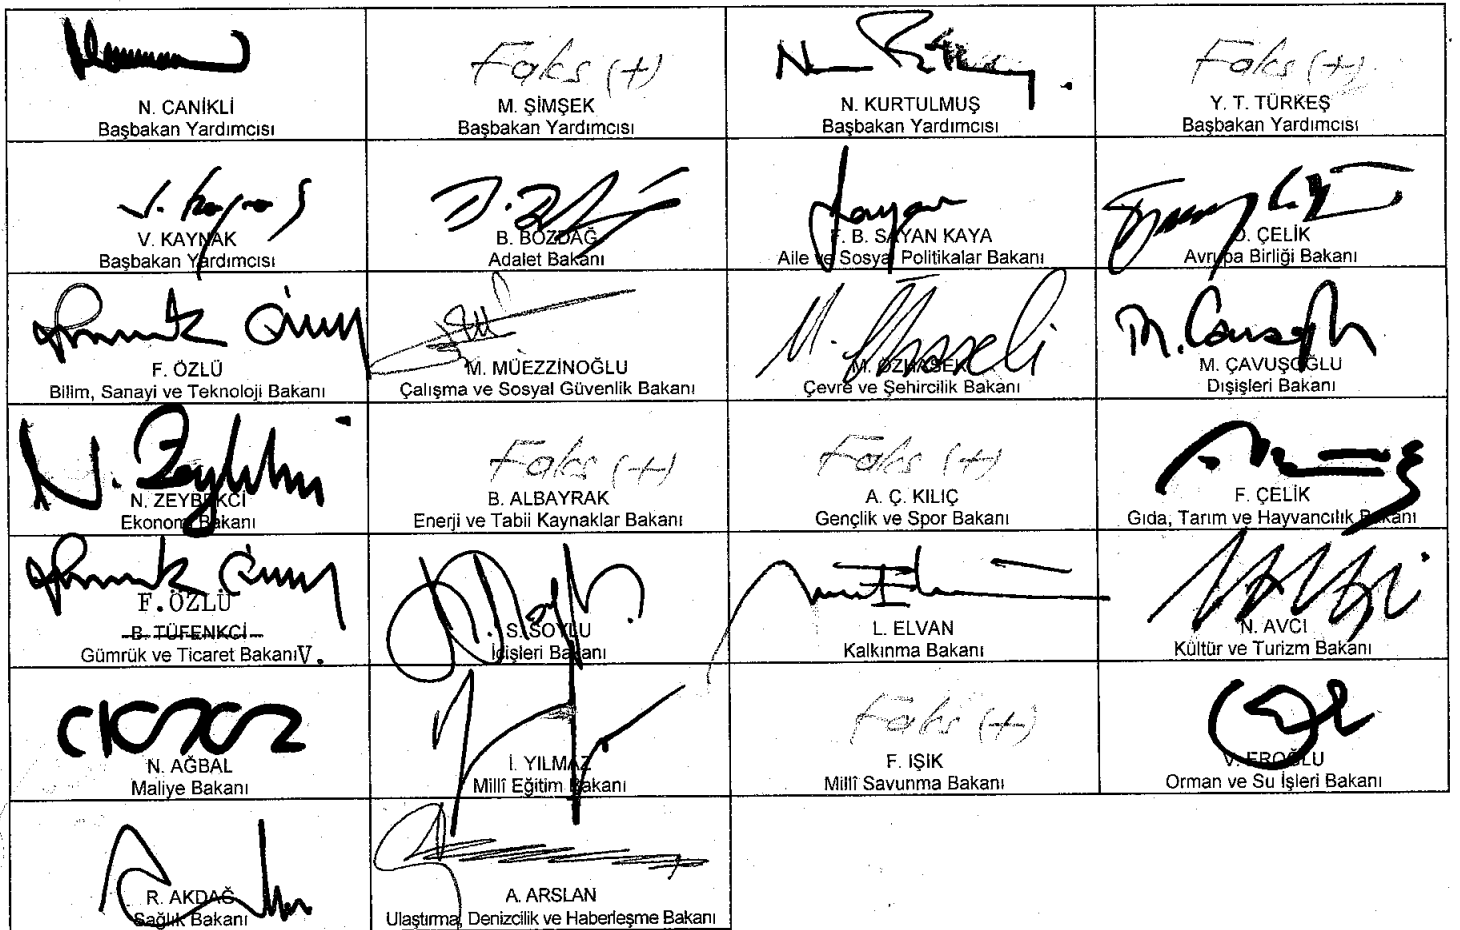 N. CANİKLİ
Başbakan Yardımcısı
Faks (+)
M. ŞİMŞEK
Başbakan Yardımcısı
N. KURTULMUŞ
Başbakan Yardımcısı
Faks (+)
Y. T. TÜRKEŞ
Başbakan Yardımcısı
V. KAYNAK
Başbakan Yardımcısı
B. BOZDAĞ
Adalet Bakanı
F. B. SAYAN KAYA
Aile ve Sosyal Politikalar Bakanı
Ö. ÇELİK
Avrupa Birliği Bakanı
F. ÖZLÜ
Bilim, Sanayi ve Teknoloji Bakanı
M. MÜEZZİNOĞLU
Çalışma ve Sosyal Güvenlik Bakanı
M. ÖZHASEKİ
Çevre ve Şehircilik Bakanı
M. ÇAVUŞOĞLU
Dışişleri Bakanı
N. Zeybekci
N. ZEYBEKCİ
Ekonomi Bakanı
Faks (+)
B. ALBAYRAK
Enerji ve Tabii Kaynaklar Bakanı
Faks (+)
A. Ç. KILIÇ
Gençlik ve Spor Bakanı
F. ÇELİK
Gıda, Tarım ve Hayvancılık Bakanı
F.ÖZLÜ
B. TÜFENKCİ
Gümrük ve Ticaret BakanıV.
S. SOYLU
İçişleri Bakanı
L. ELVAN
Kalkınma Bakanı
N. AVCI
Kültür ve Turizm Bakanı
N. AĞBAL
Maliye Bakanı
İ. YILMAZ
Millî Eğitim Bakanı
Faks (+)
F. IŞIK
Millî Savunma Bakanı
V. EROĞLU
Orman ve Su İşleri Bakanı
R. AKDAĞ
Sağlık Bakanı
A. ARSLAN
Ulaştırma, Denizcilik ve Haberleşme Bakanı